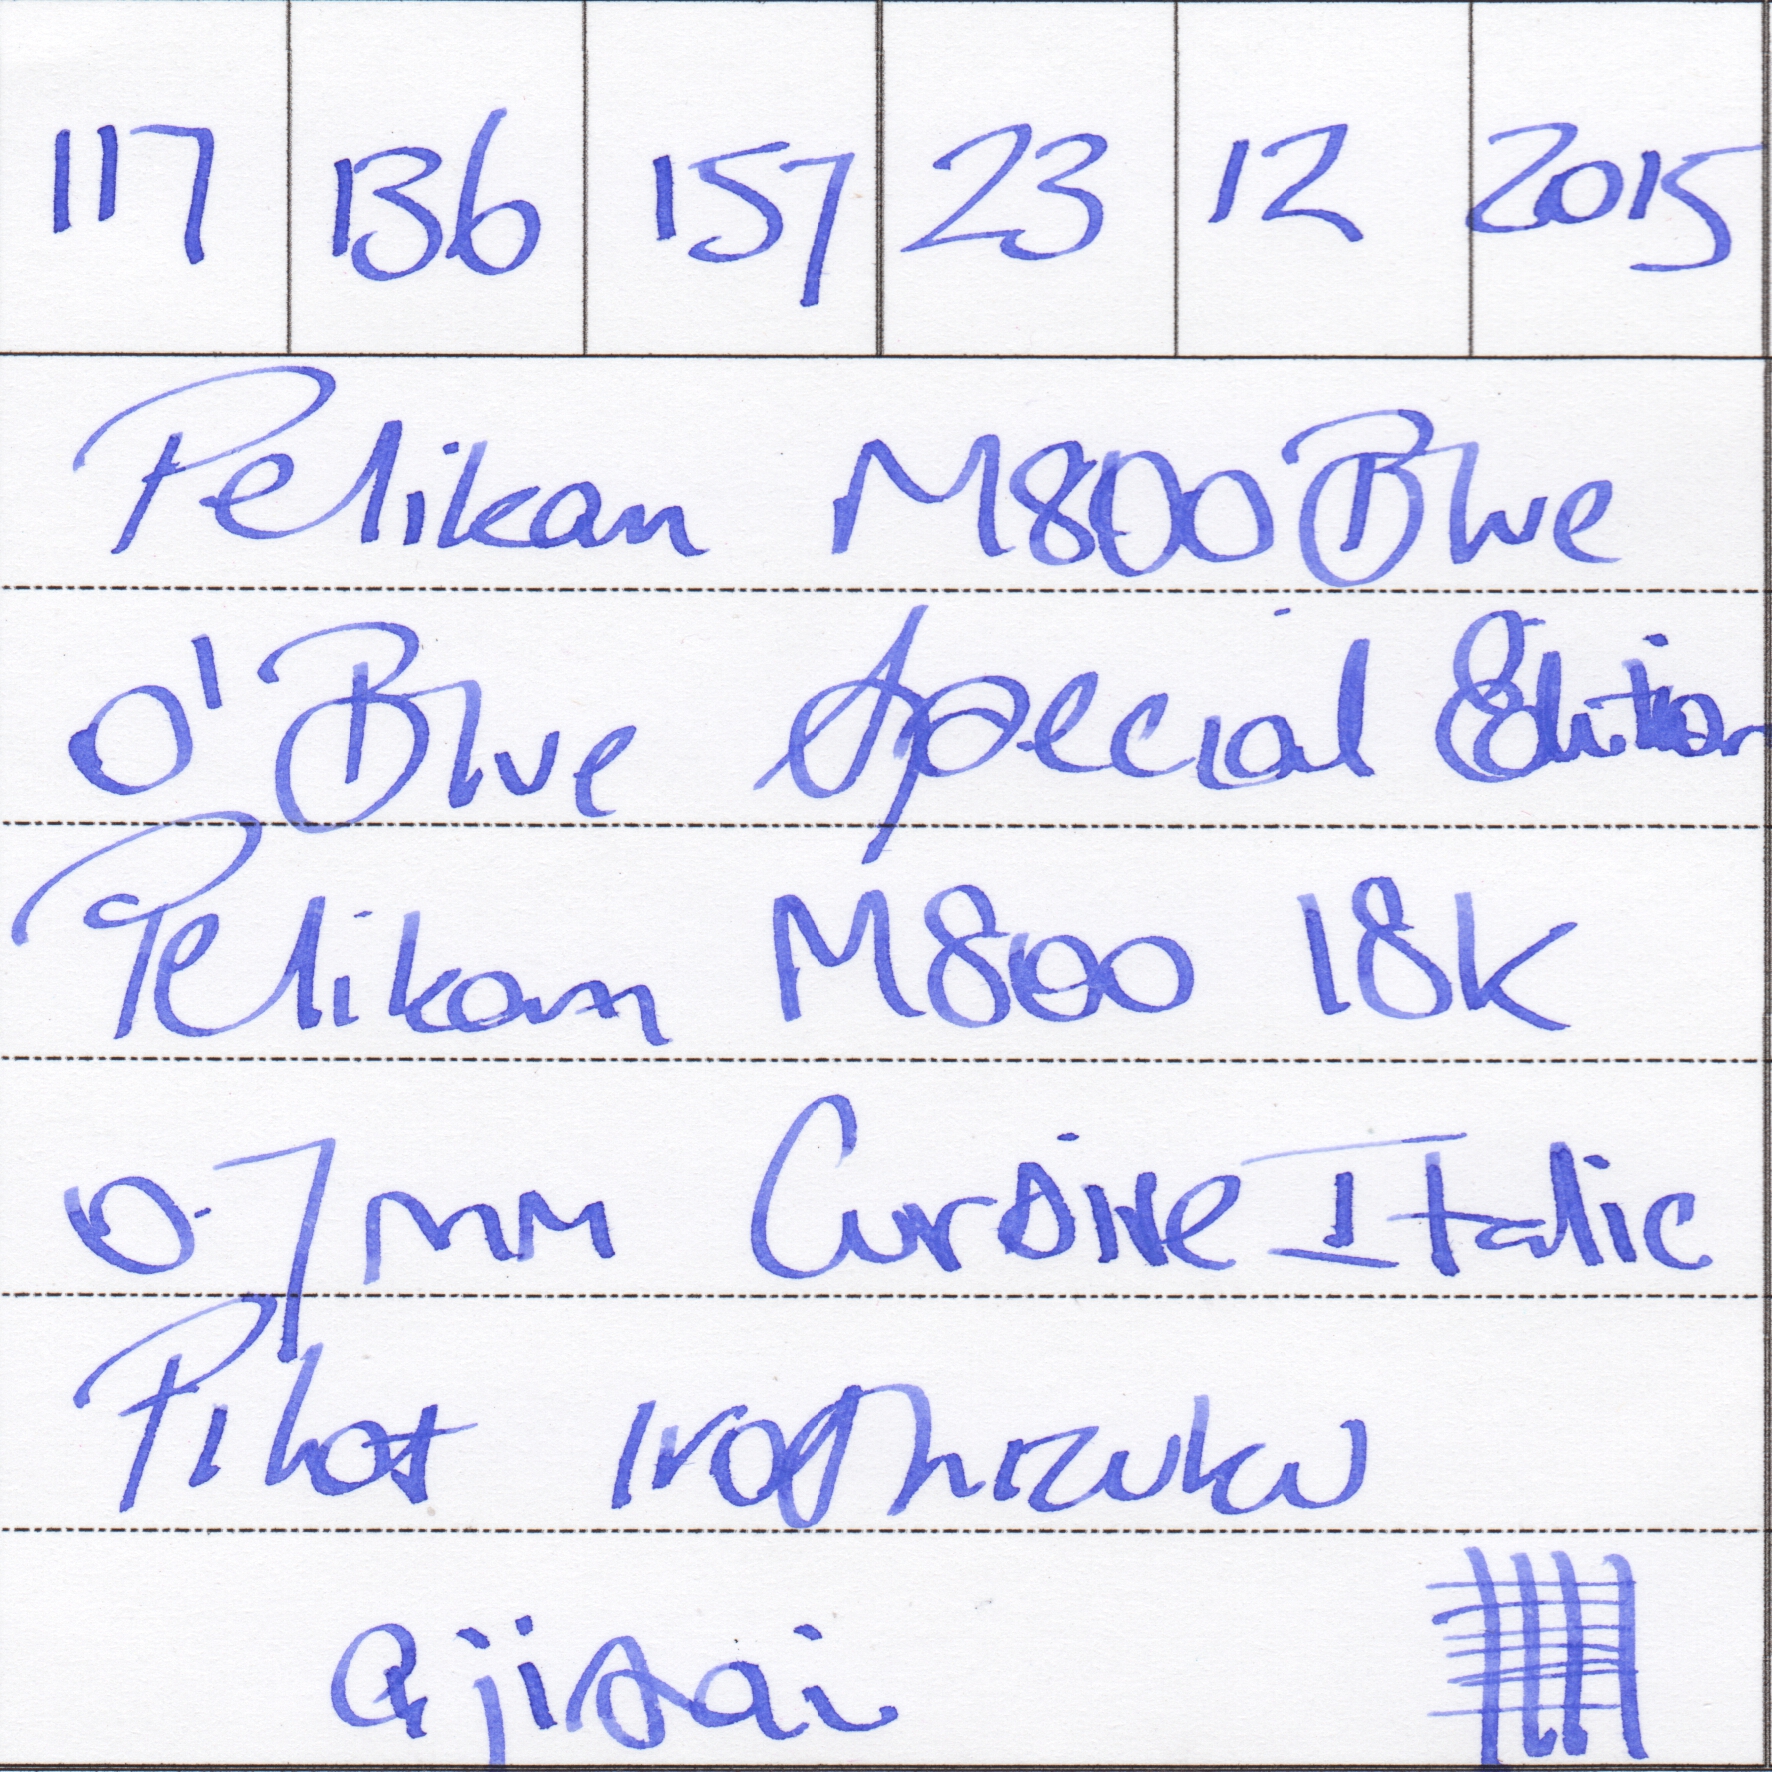 117 136 157 23 12 2015
Pelikan M800 Blue
O' Blue Special Edition
Pelikan M800 18K
0.7mm Cursive Italic
Pilot Iroshizuku
ajisai